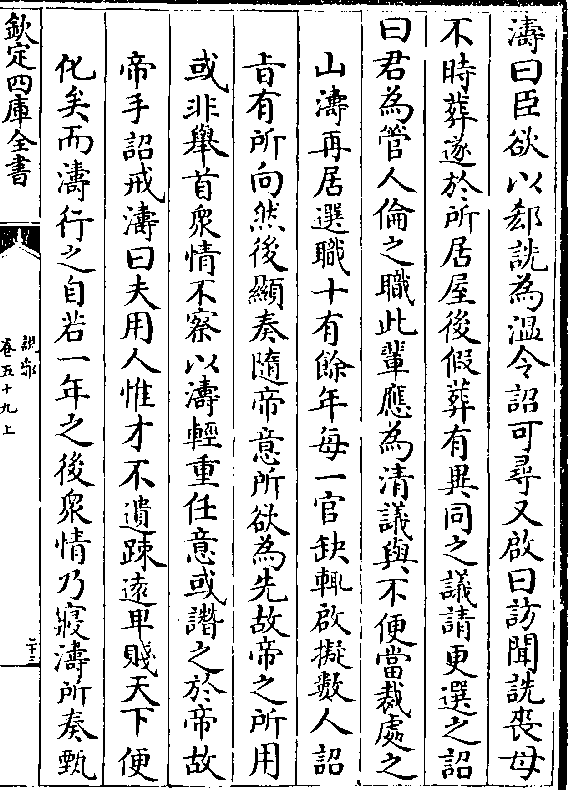 濤曰臣欲以郄詵為溫令詔可尋又啟曰訪聞詵喪母
不時葬遂於所居屋後假葬有異同之議請更選之詔
曰君為管人倫之職此輩應為清議與不便當裁處之
山濤再居選職十有餘年每一官缺輒啟擬數人詔
㫖有所向然後顯奏隨帝意所欲為先故帝之所用
或非舉首衆情不察以濤輕重任意或譖之於帝故
帝手詔戒濤曰夫用人惟才不遺踈逺卑賤天下便
化矣而濤行之自若一年之後衆情乃寢濤所奏甄
欽定四庫全書
說郛
卷五十九上
二十三